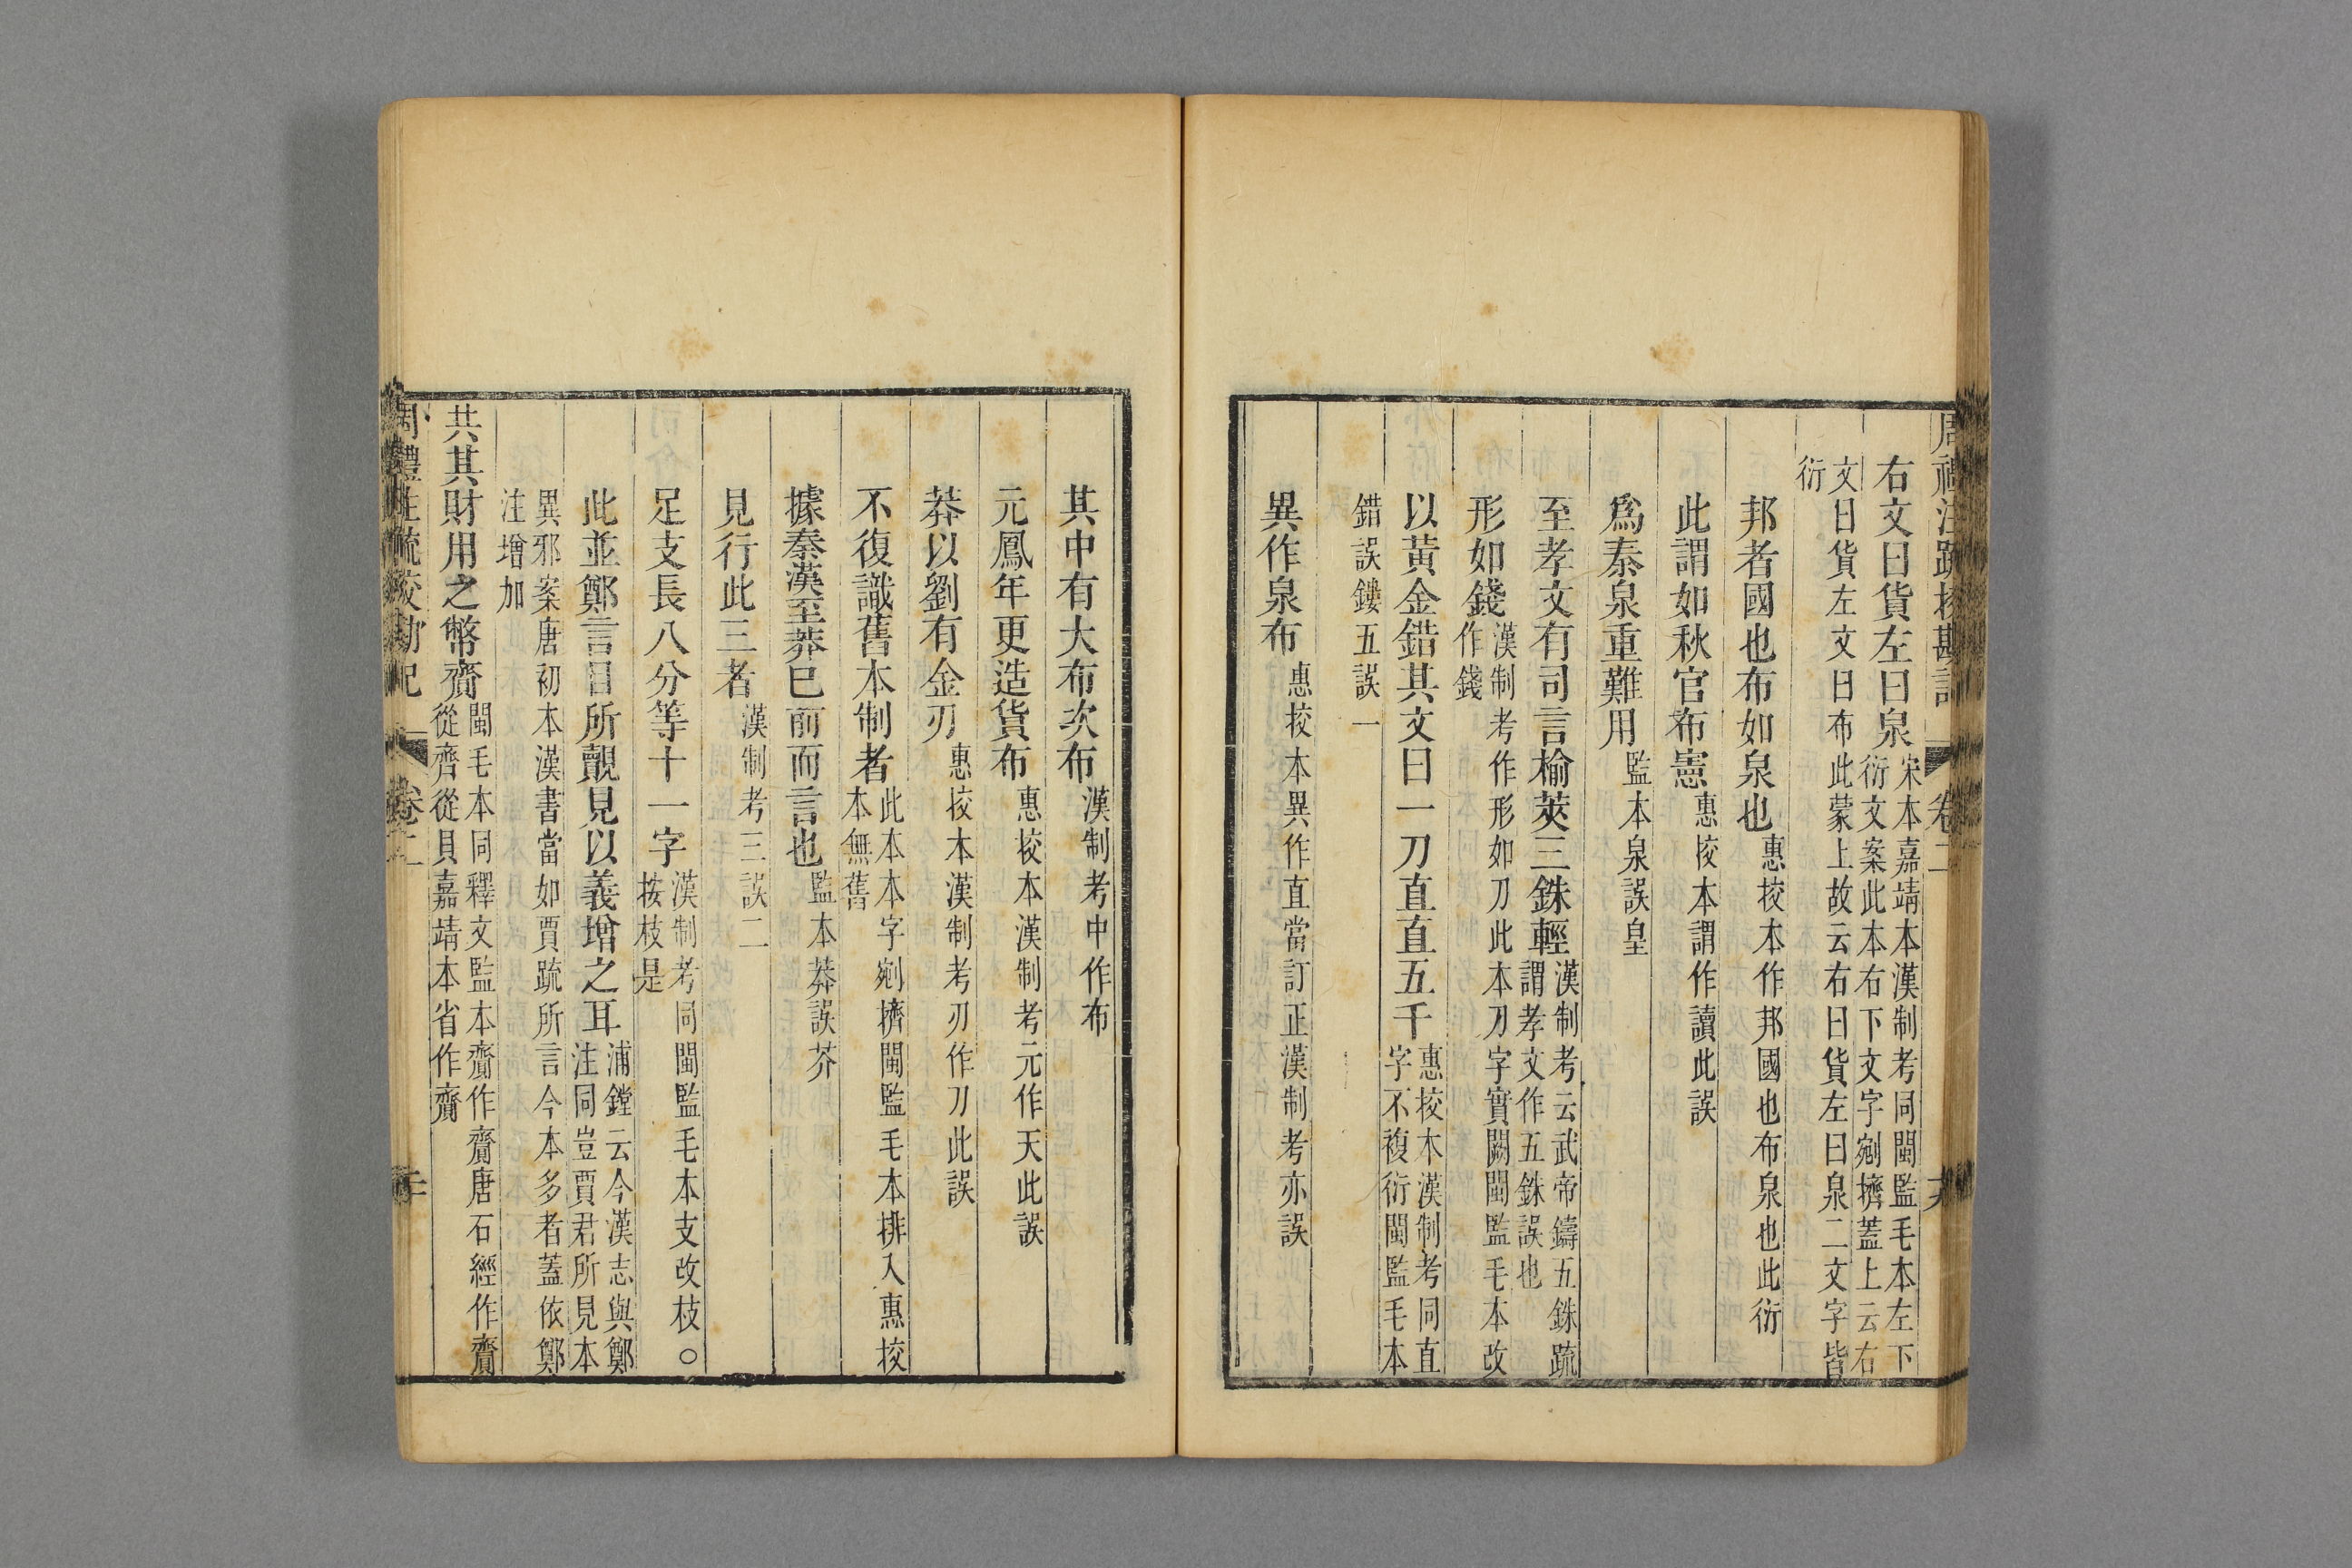 周禮注疏挍勘記 卷二
右文曰貨左曰泉宋本嘉靖本漢制考同閩監毛本左下衍文案此本右下文字剜擠蓋上云右
文曰貨左文曰布此蒙上故云右曰貨左曰泉二文字皆衍
邦者國也布如泉也惠挍本作邦國也布泉也此衍
此謂如秋官布憲惠挍本謂作讀此誤
爲秦泉重難用監本泉誤皇
至孝文有司言榆莢三銖輕漢制考云武帝鑄五銖疏謂孝文作五銖誤也
形如錢漢制考作形如刀此本刀字實闕閩監毛本改作錢
以黃金錯其文曰一刀直直五千惠挍本漢制考同直字不複衍閩監毛本
錯誤鏤五誤一
異作泉布惠挍本異作直當訂正漢制考亦誤
其中有大布次布漢制考中作布
元鳳年更造貨布惠挍本漢制考元作天此誤
莽以劉有金刃惠挍本漢制考刃作刀此誤
不復識舊本制者此本本字剜擠閩監毛本排入惠挍本無舊
據秦漢至莽巳前而言也監本莽誤芥
見行此三者漢制考三誤二
足支長八分等十一字漢制考同閩監毛本支改枝○按枝是
此並鄭言目所覩見以義增之耳浦鏜云今漢志與鄭注同豈賈君所見本
異邪案唐初本漢書當如賈疏所言今本多者蓋依鄭注增加
共其財用之幣齎閩毛本同釋文監本齎作齎唐石經作齎從齊從貝嘉靖本省作齎
周禮注疏挍勘記 卷二